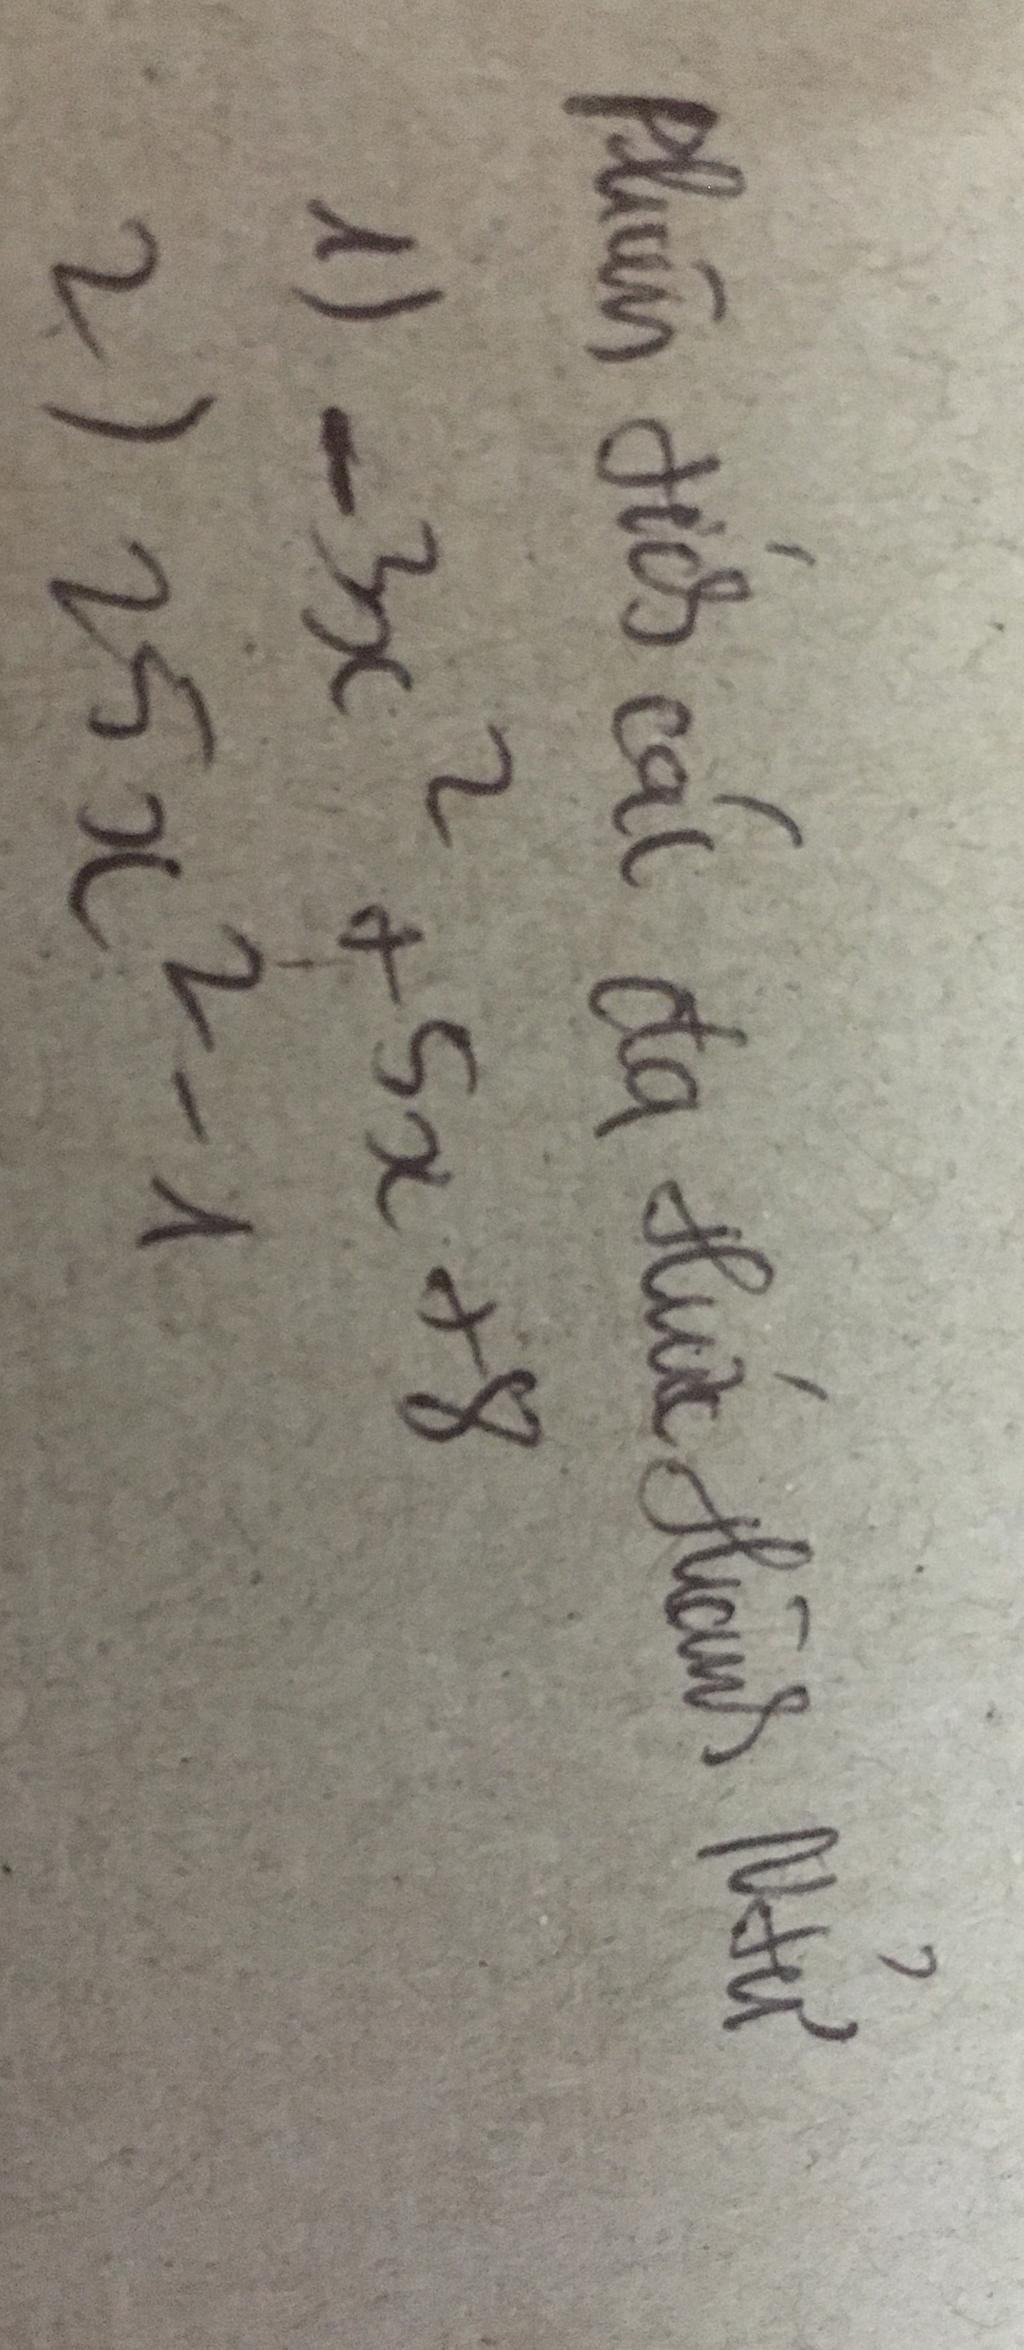 Phân tích các đa thức thành N.tử
1) -3x² + 5x + 8
2) 25x² - 1